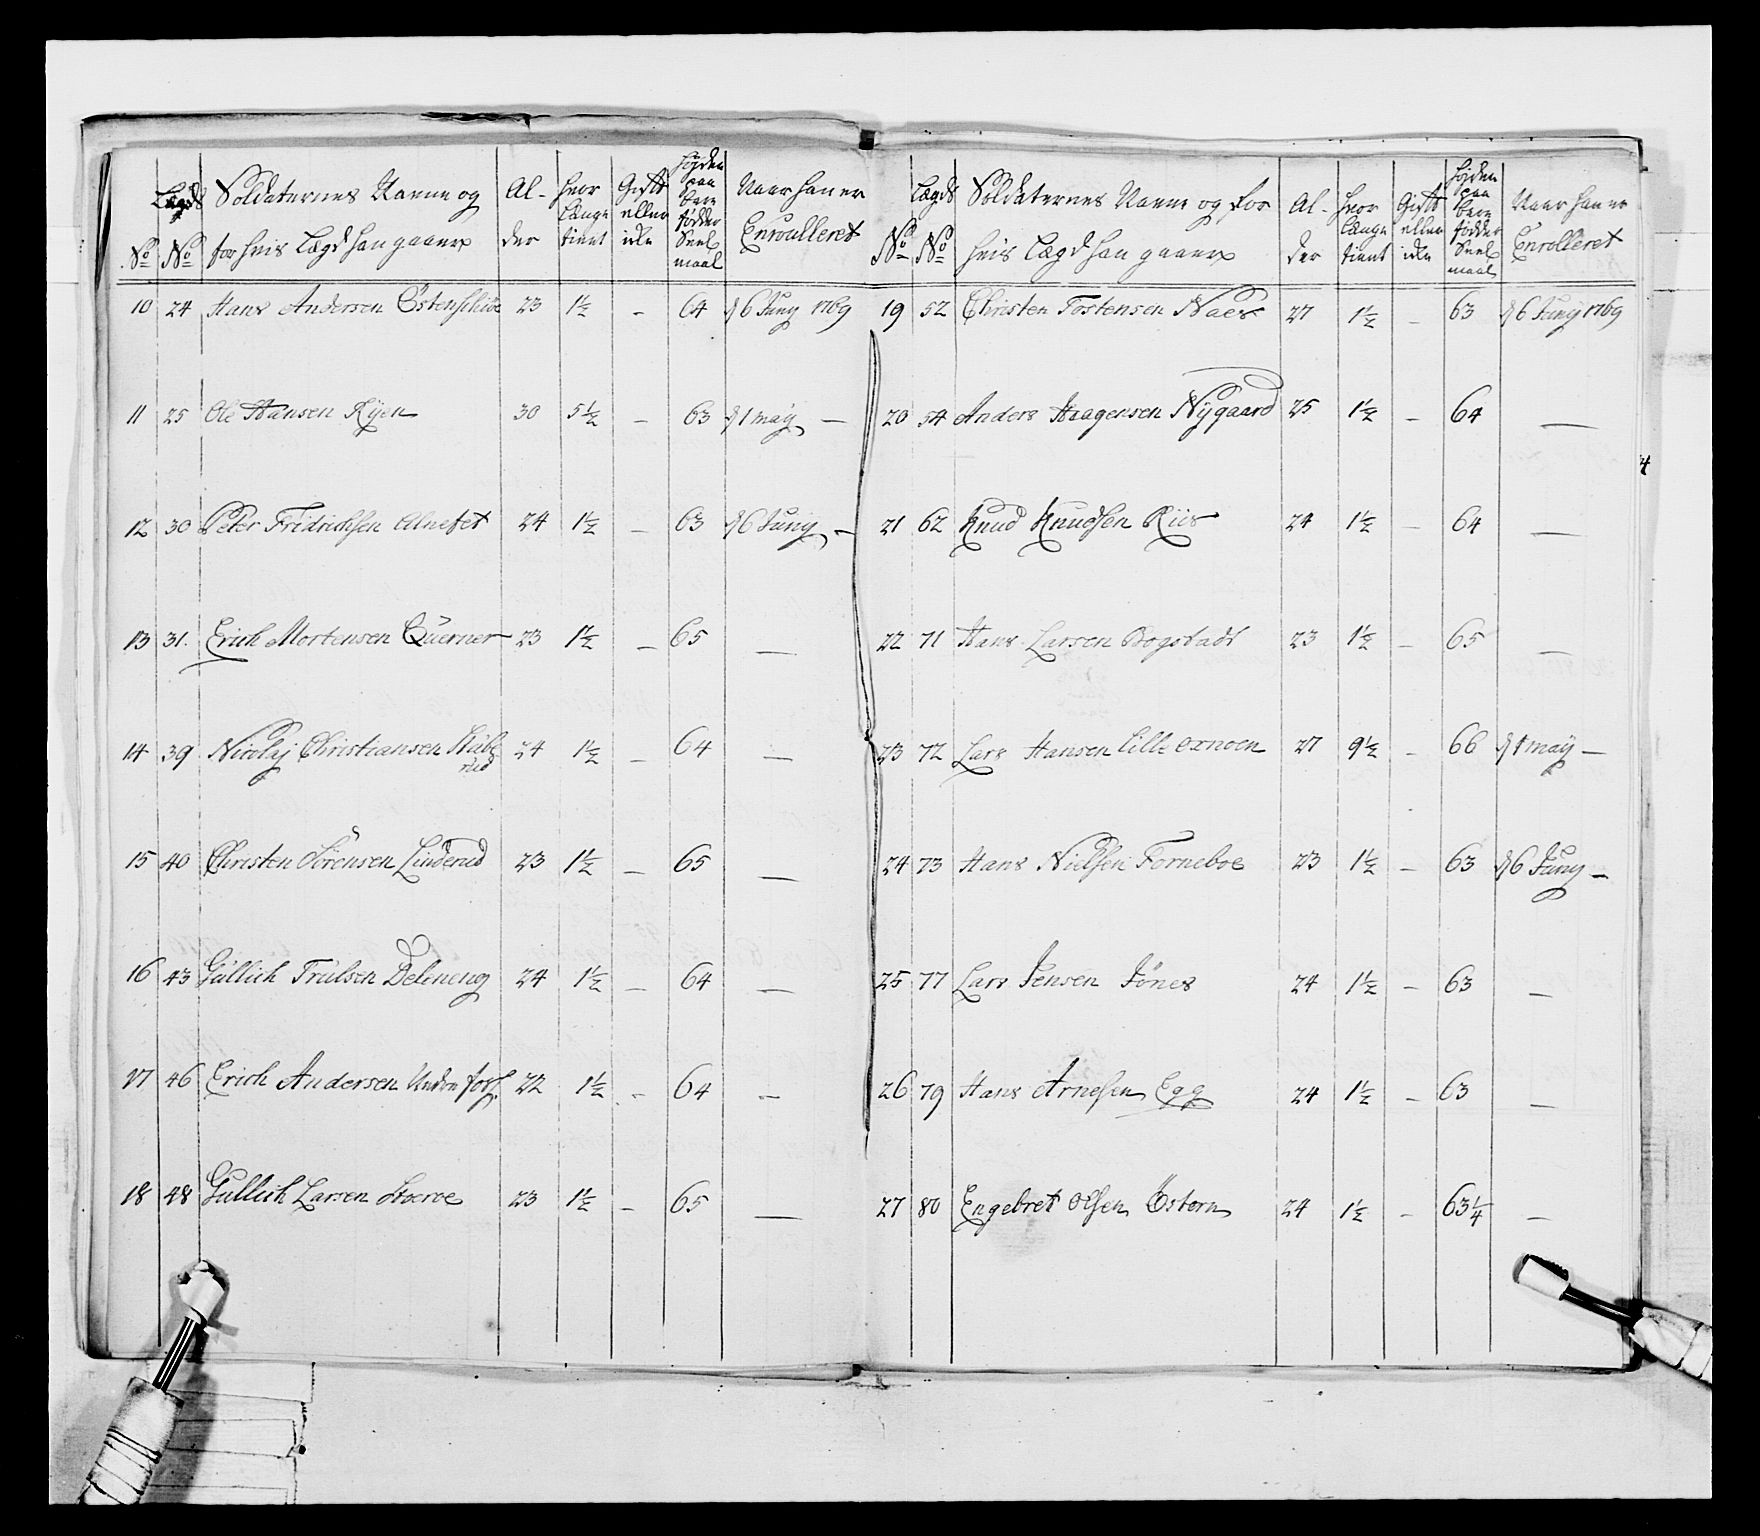 No Lægds No Soldaternes Navne og for hvis Lægd han gaaer Al-der hvor Længe tient Gift eller ikke Høyden paa bare fødder Sees maal Naar han er Enroulleret
10 24 Hans Andersen 23 1½ - 64 d 6 Juny 1769
11 25 Ole Hansen Ryen 30 5½ - 63 d 1 may -
12 30 Peter Fridrichsen Alnefet 24 1½ - 63 d 6 Juny -
13 31. Erich Mortensen Querner 23 1½ - 65 -
14 39 Nicolaj Christiansen 24 1½ - 64 -
15 40 Christen Sörensen Linderud 23 1½ - 65 -
16 43 Gullich Trulsen Deleneng 24 1½ - 64 -
17 46 Erich Andersen 22 1½ - 64 -
18 48 Gullich Larsen 23 1½ - 65 -
No Lægds No Soldaternes Navne og for hvis Lægd han gaaer Al-der hvor Længe tient Gift eller ikke Høyden paa bare fødder Sees maal Naar han er Enrolleret
19 52 Christen Tostensen Naes 27 1½ - 63 d 6 Juny 1769
20 54 Anders Haagensen Nÿgaard 25 1½ - 64 -
21 62 Knud Knudsen Riis 24 1½ - 64 -
22 71 Hans Larsen Bogstadt 23 1½ - 65 -
23 72 Lars Hansen Lille oxnoen 27 9½ - 66 d 1 may -
24 73 Hans Nielsen Forneboe 23 1½ - 63 d 6 Juny -
25 77 Lars Jensen Jönes 24 1½ - 63 -
26 79 Hans Arnesen Egg 24 1½ - 63 -
27 80 Engebret Olsen Östern 24 1½ - 63¼ -